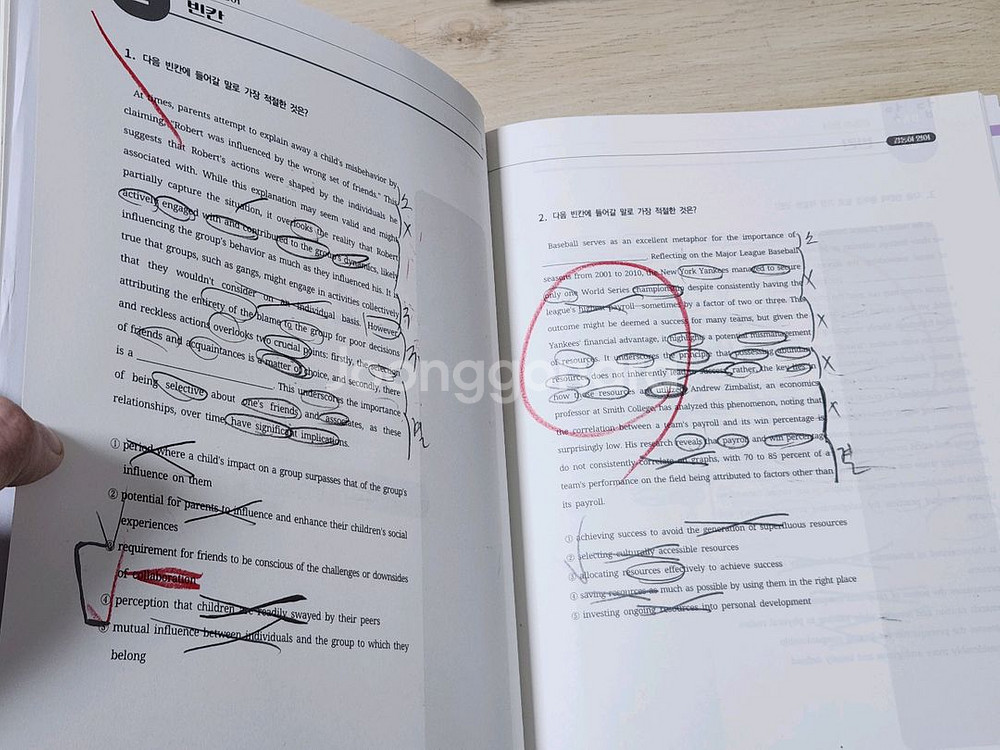 빈칸
1. 다음 빈칸에 들어갈 말로 가장 적절한 것은?
At times, parents attempt to explain away a child's misbehavior by
claiming, "Robert was influenced by the wrong set of friends." This
suggests that Robert's actions were shaped by the individuals he
associated with. While this explanation may seem valid and might
partially capture the situation, it overlooks the reality that Robert
actively engaged with and contributed to the group's dynamics, likely
influencing the group's behavior as much as they influenced his. It is
true that groups, such as gangs, might engage in activities collectively
that they wouldn't consider on an individual basis. However,
attributing the entirety of the blame to the group for poor decisions
and reckless actions overlooks two crucial points: firstly, the
of friends and acquaintances is a matter of choice, and secondly, there
is a ____________. This underscores the importance
of being selective about one's friends and associates, as these
relationships, over time, have significant implications.
① period where a child's impact on a group surpasses that of the group's
influence on them
② potential for parents to influence and enhance their children's social
experiences
③ requirement for friends to be conscious of the challenges or downsides
of collaboration
④ perception that children are readily swayed by their peers
⑤ mutual influence between individuals and the group to which they
belong
2. 다음 빈칸에 들어갈 말로 가장 적절한 것은?
Baseball serves as an excellent metaphor for the importance of
____________. Reflecting on the Major League Baseball
seasons from 2001 to 2010, the New York Yankees managed to secure
only one World Series championship despite consistently having the
league's highest payroll—sometimes by a factor of two or three. This
outcome might be deemed a success for many teams, but given the
Yankees' financial advantage, it highlights a potential mismanagement
of resources. It underscores the principle that possessing abundant
resources does not inherently lead to success rather, the key lies in
how those resources are utilized. Andrew Zimbalist, an economics
professor at Smith College, has analyzed this phenomenon, noting that
the correlation between a team's payroll and its win percentage is
surprisingly low. His research reveals that payroll and win percentage
do not consistently correlate on graphs, with 70 to 85 percent of a
team's performance on the field being attributed to factors other than
its payroll.
① achieving success to avoid the generation of superfluous resources
② selecting culturally accessible resources
③ allocating resources effectively to achieve success
④ saving resources as much as possible by using them in the right place
⑤ investing ongoing resources into personal development